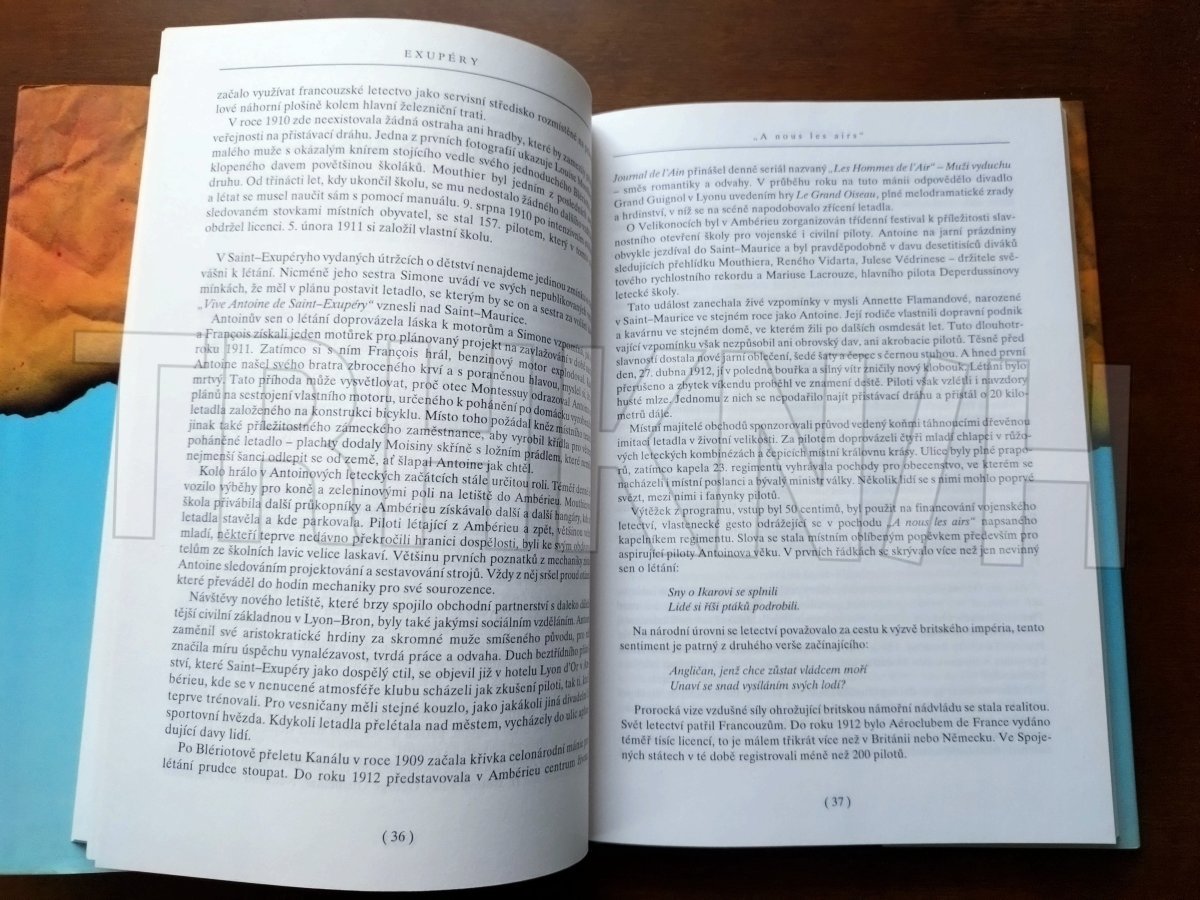 EXUPÉRY
začalo využívat francouzské letectvo jako servisní středisko rozmístěné na
lové náhorní plošině kolem hlavní železniční trati.
V roce 1910 zde neexistovala žádná ostraha ani hradby, které by
veřejnosti na přistávací dráhu. Jedna z prvních fotografií ukazuje
malého muže s okázalým knírem stojícího vedle svého jednoduchého
klopeného davem povětšinou školáků. Mouthier byl jedním z posledních
druhu. Od třinácti let, kdy ukončil školu, se mu nedostalo žádného dalšího
a létat se musel naučit sám s pomocí manuálu. 9. srpna 1910 po intenzivním
sledovaném stovkami místních obyvatel, se stal 157. pilotem, který v
obdržel licenci. 5. února 1911 si založil vlastní školu.
V Saint–Exupéryho vydaných útržcích o dětství nenajdeme jedinou
vášni k létání. Nicméně jeho sestra Simone uvádí ve svých nepublikovaných
mínkách, že měl v plánu postavit letadlo, se kterým by se on a sestra za
„Vive Antoine de Saint–Exupéry“ vznesli nad Saint–Maurice.
Antoinův sen o létání doprovázela láska k motorům a Simone
a François získali jeden motůrek pro plánovaný projekt na zavlažování v
roku 1911. Zatímco si s ním François hrál, benzinový motor explodoval.
Antoine našel svého bratra zbroceného krví a s poraněnou hlavou,
mrtvý. Tato příhoda může vysvětlovat, proč otec Montessuy odrazoval
plánů na sestrojení vlastního motoru, určeného k pohánění po domácku
letadla založeného na konstrukci bicyklu. Místo toho požádal kněz místního
jinak také příležitostného zámeckého zaměstnance, aby vyrobil křídla pro
poháněné letadlo – plachty dodaly Moisiny skříně s ložním prádlem, které
nejmenší šanci odlepit se od země, ať šlapal Antoine jak chtěl.
Kolo hrálo v Antoinových leteckých začátcích stále určitou roli. Téměř
vozilo výběhy pro koně a zeleninovými poli na letiště do Ambérieu.
škola přivábila další průkopníky a Ambérieu získávalo další a další hangáry,
letadla stavěla a kde parkovala. Piloti létající z Ambérieu a zpět, většinou
mladí, někteří teprve nedávno překročili hranici dospělosti, byli ke svým
telům ze školních lavic velice laskaví. Většinu prvních poznatků z mechaniky
Antoine sledováním projektování a sestavování strojů. Vždy z něj sršel proud
které převáděl do hodin mechaniky pro své sourozence.
Návštěvy nového letiště, které brzy spojilo obchodní partnerství s daleko
tější civilní základnou v Lyon–Bron, byly také jakýmsi sociálním vzděláním.
zaměnil své aristokratické hrdiny za skromné muže smíšeného původu, pro
značila míru úspěchu vynalézavost, tvrdá práce a odvaha. Duch beztřídního
ství, které Saint–Exupéry jako dospělý ctil, se objevil již v hotelu Lyon d'Or v
bérieu, kde se v nenucené atmosféře klubu scházeli jak zkušení piloti, tak ti,
teprve trénovali. Pro vesničany měli stejné kouzlo, jako jakákoli jiná divadelní
sportovní hvězda. Kdykoli letadla přelétala nad městem, vycházely do ulic
dující davy lidí.
Po Blériotově přeletu Kanálu v roce 1909 začala křivka celonárodní mánie
létání prudce stoupat. Do roku 1912 představovala v Ambérieu centrum
( 36 )
„A nous les airs“
Journal de l'Ain přinášel denně seriál nazvaný „Les Hommes de l'Air“ – Muži vyduchu
– směs romantiky a odvahy. V průběhu roku na tuto mánii odpovědělo divadlo
Grand Guignol v Lyonu uvedením hry Le Grand Oiseau, plné melodramatické zrady
a hrdinství, v níž se na scéně napodobovalo zřícení letadla.
O Velikonocích byl v Ambérieu zorganizován třídenní festival k příležitosti slav-
nostního otevření školy pro vojenské i civilní piloty. Antoine na jarní prázdniny
obvykle jezdíval do Saint–Maurice a byl pravděpodobně v davu desetitisíců diváků
sledujících přehlídku Mouthiera, Reného Vidarta, Julese Védrinese – držitele svě-
tového rychlostního rekordu a Mariuse Lacrouze, hlavního pilota Deperdussinovy
letecké školy.
Tato událost zanechala živé vzpomínky v mysli Annette Flamandové, narozené
v Saint–Maurice ve stejném roce jako Antoine. Její rodiče vlastnili dopravní podnik
a kavárnu ve stejném domě, ve kterém žili po dalších osmdesát let. Tuto dlouhotr-
vající vzpomínku však nezpůsobil ani obrovský dav, ani akrobacie pilotů. Těsně před
slavností dostala nové jarní oblečení, šedé šaty a čepec s černou stuhou. A hned první
den, 27. dubna 1912, jí v poledne bouřka a silný vítr zničily nový klobouk. Létání bylo
přerušeno a zbytek víkendu proběhl ve znamení deště. Piloti však vzlétli i navzdory
husté mlze. Jednomu z nich se nepodařilo najít přistávací dráhu a přistál o 20 kilo-
metrů dále.
Místní majitelé obchodů sponzorovali průvod vedený koňmi táhnoucími dřevěnou
imitaci letadla v životní velikosti. Za pilotem doprovázeli čtyři mladí chlapci v růžo-
vých leteckých kombinézách a čepicích místní královnu krásy. Ulice byly plné prapo-
rů, zatímco kapela 23. regimentu vyhrávala pochody pro obecenstvo, ve kterém se
nacházeli i místní poslanci a bývalý ministr války. Několik lidí se s nimi mohlo poprvé
svézt, mezi nimi i fanynky pilotů.
Výtěžek z programu, vstup byl 50 centimů, byl použit na financování vojenského
letectví, vlastenecké gesto odrážející se v pochodu „A nous les airs“ napsaného
kapelníkem regimentu. Slova se stala místním oblíbeným popěvkem především pro
aspirující piloty Antoinova věku. V prvních řádkách se skrývalo více než jen nevinný
sen o létání:
Sny o Ikarovi se splnili
Lidé si říši ptáků podrobili.
Na národní úrovni se letectví považovalo za cestu k výzvě britského impéria, tento
sentiment je patrný z druhého verše začínajícího:
Angličan, jenž chce zůstat vládcem moří
Unaví se snad vysíláním svých lodí?
Prorocká vize vzdušné síly ohrožující britskou námořní nádvládu se stala realitou.
Svět letectví patřil Francouzům. Do roku 1912 bylo Aéroclubem de France vydáno
téměř tisíc licencí, to je málem třikrát více než v Británii nebo Německu. Ve Spoje-
ných státech v té době registrovali méně než 200 pilotů.
( 37 )